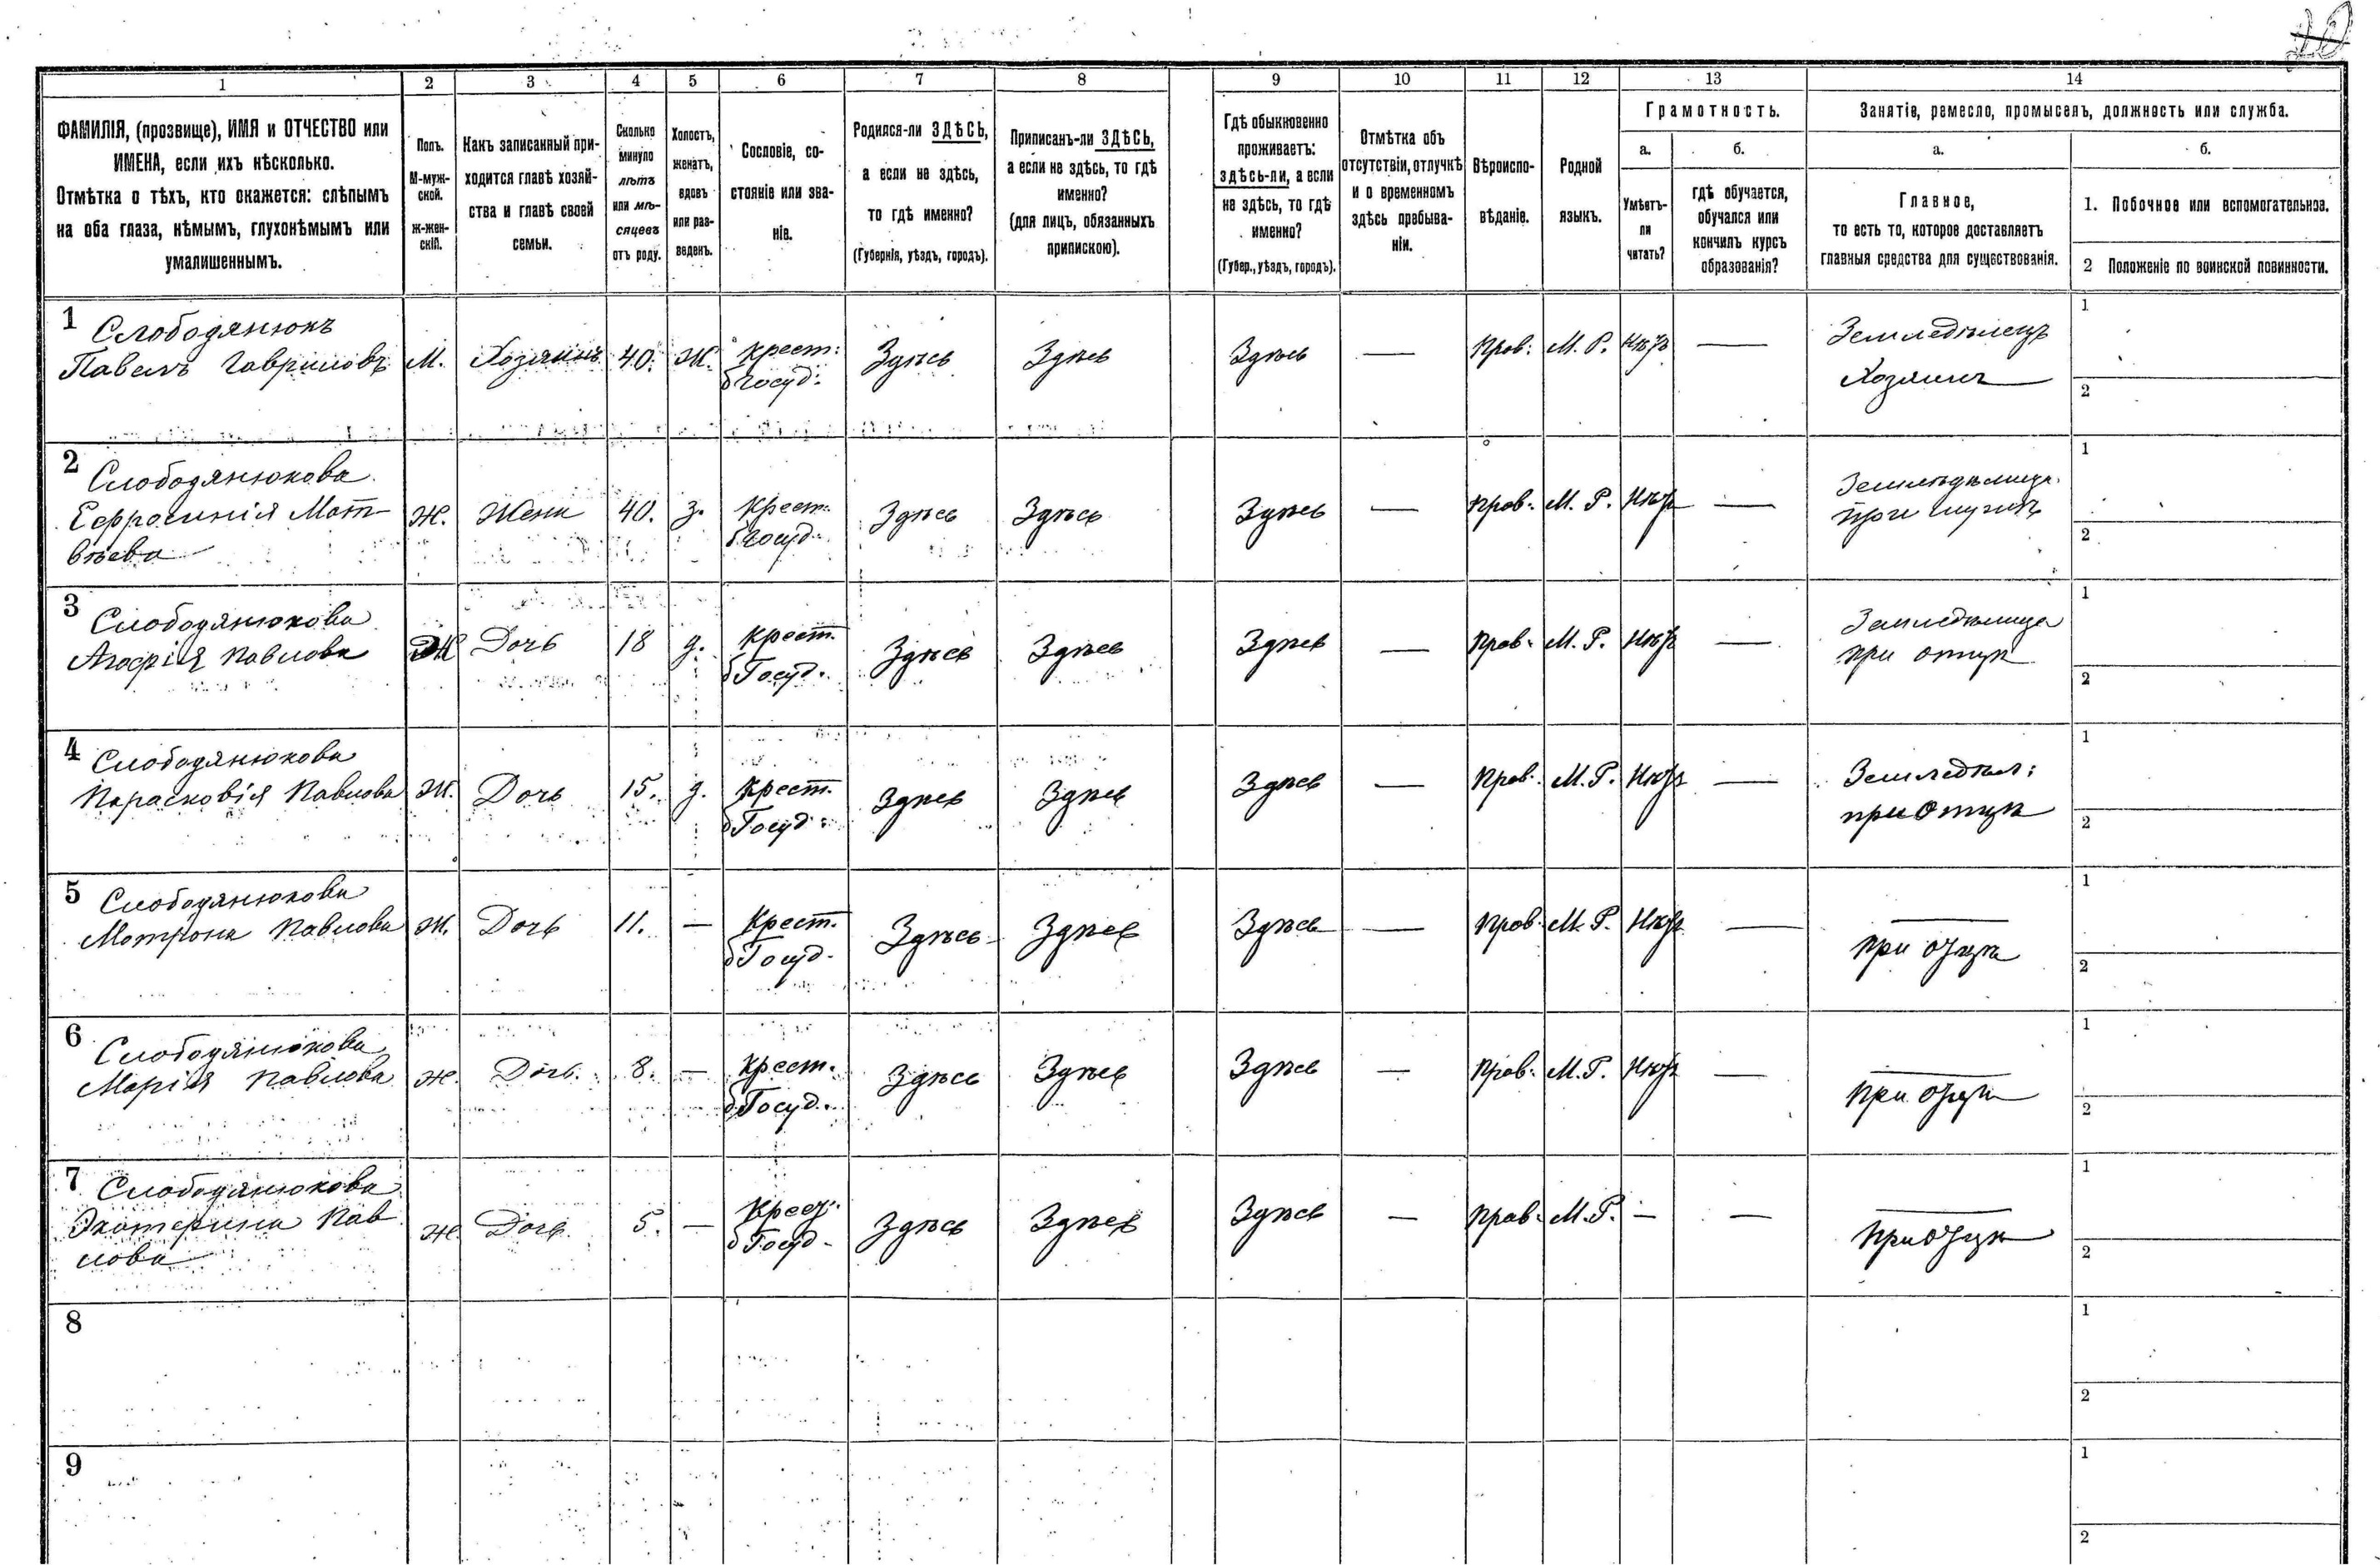 20
1 2 3 4 5 6 7 8 9 10 11 12 13 14
ФАМИЛІЯ, (прозвище), ИМЯ и ОТЧЕСТВО или
ИМЕНА, если ихъ нѣсколько.
Отмѣтка о тѣхъ, кто окажется: слѣпымъ
на оба глаза, нѣмымъ, глухонѣмымъ или
умалишеннымъ.
Полъ.
М-муж-
ской.
Ж-жен-
скій.
Какъ записанный при-
ходится главѣ хозяй-
ства и главѣ своей
семьи.
Сколько
минуло
лѣтъ
или мѣ-
сяцевъ
отъ роду.
Холостъ,
женатъ,
вдовъ
или раз-
веденъ.
Сословіе, со-
стояніе или зва-
ніе.
Родился-ли ЗДѢСЬ,
а если не здѣсь,
то гдѣ именно?
(Губернія, уѣздъ, городъ).
Приписанъ-ли ЗДѢСЬ,
а если не здѣсь, то гдѣ
именно?
(для лицъ, обязанныхъ
припискою).
Гдѣ обыкновенно
проживаетъ:
здѣсь-ли, а если
не здѣсь, то гдѣ
именно?
(Губер., уѣздъ, городъ).
Отмѣтка объ
отсутствіи, отлучкѣ
и о временномъ
здѣсь пребыва-
ніи.
Вѣроиспо-
вѣданіе.
Родной
языкъ.
Грамотность.
а.
Умѣетъ-
ли
читать?
б.
гдѣ обучается,
обучался или
кончилъ курсъ
образованія?
Занятіе, ремесло, промыселъ, должность или служба.
а.
Главное,
то есть то, которое доставляетъ
главныя средства для существованія.
б.
1. Побочное или вспомогательное.
2 Положеніе по воинской повинности.
1 Слободянюкъ
Павелъ Гавриловъ М. Хозяинъ 40. Ж. Крест: Здѣсь Здѣсь Здѣсь — Прав: М. Р. Нѣтъ — Земледѣлецъ 1
б Госуд: Хозяинъ 2
2 Слободянюкова
Евфросинія Мат- Ж. Жена 40. З. Крест: Здѣсь Здѣсь Здѣсь — Прав: М. Р. Нѣтъ — Земледѣлица 1
вѣева б Госуд. при мужѣ 2
3 Слободянюкова
Агафія Павлова Ж Дочь 18 Д. Крест. Здѣсь Здѣсь Здѣсь — Прав: М. Р. Нѣтъ — Земледѣлица 1
б Госуд. при отцѣ 2
4 Слободянюкова
Парасковія Павлова Ж. Дочь 15. Д. Крест. Здѣсь Здѣсь Здѣсь — Прав: М. Р. Нѣтъ — Земледѣл: 1
б Госуд. при Отцѣ 2
5 Слободянюкова
Матрона Павлова Ж. Дочь 11. — Крест. Здѣсь Здѣсь Здѣсь — Прав: М. Р. Нѣтъ — — 1
б Госуд. при отцѣ 2
6 Слободянюкова
Марія Павлова Ж. Дочь. 8. — Крест. Здѣсь Здѣсь Здѣсь — Прав: М. Р. Нѣтъ — — 1
б Госуд. при отцѣ 2
7 Слободянюкова
Экатерина Пав Ж Дочь 5. — Крест. Здѣсь Здѣсь Здѣсь — Прав: М. Р. — — — 1
лова б Госуд. при отцѣ 2
8 1
2
9 1
2